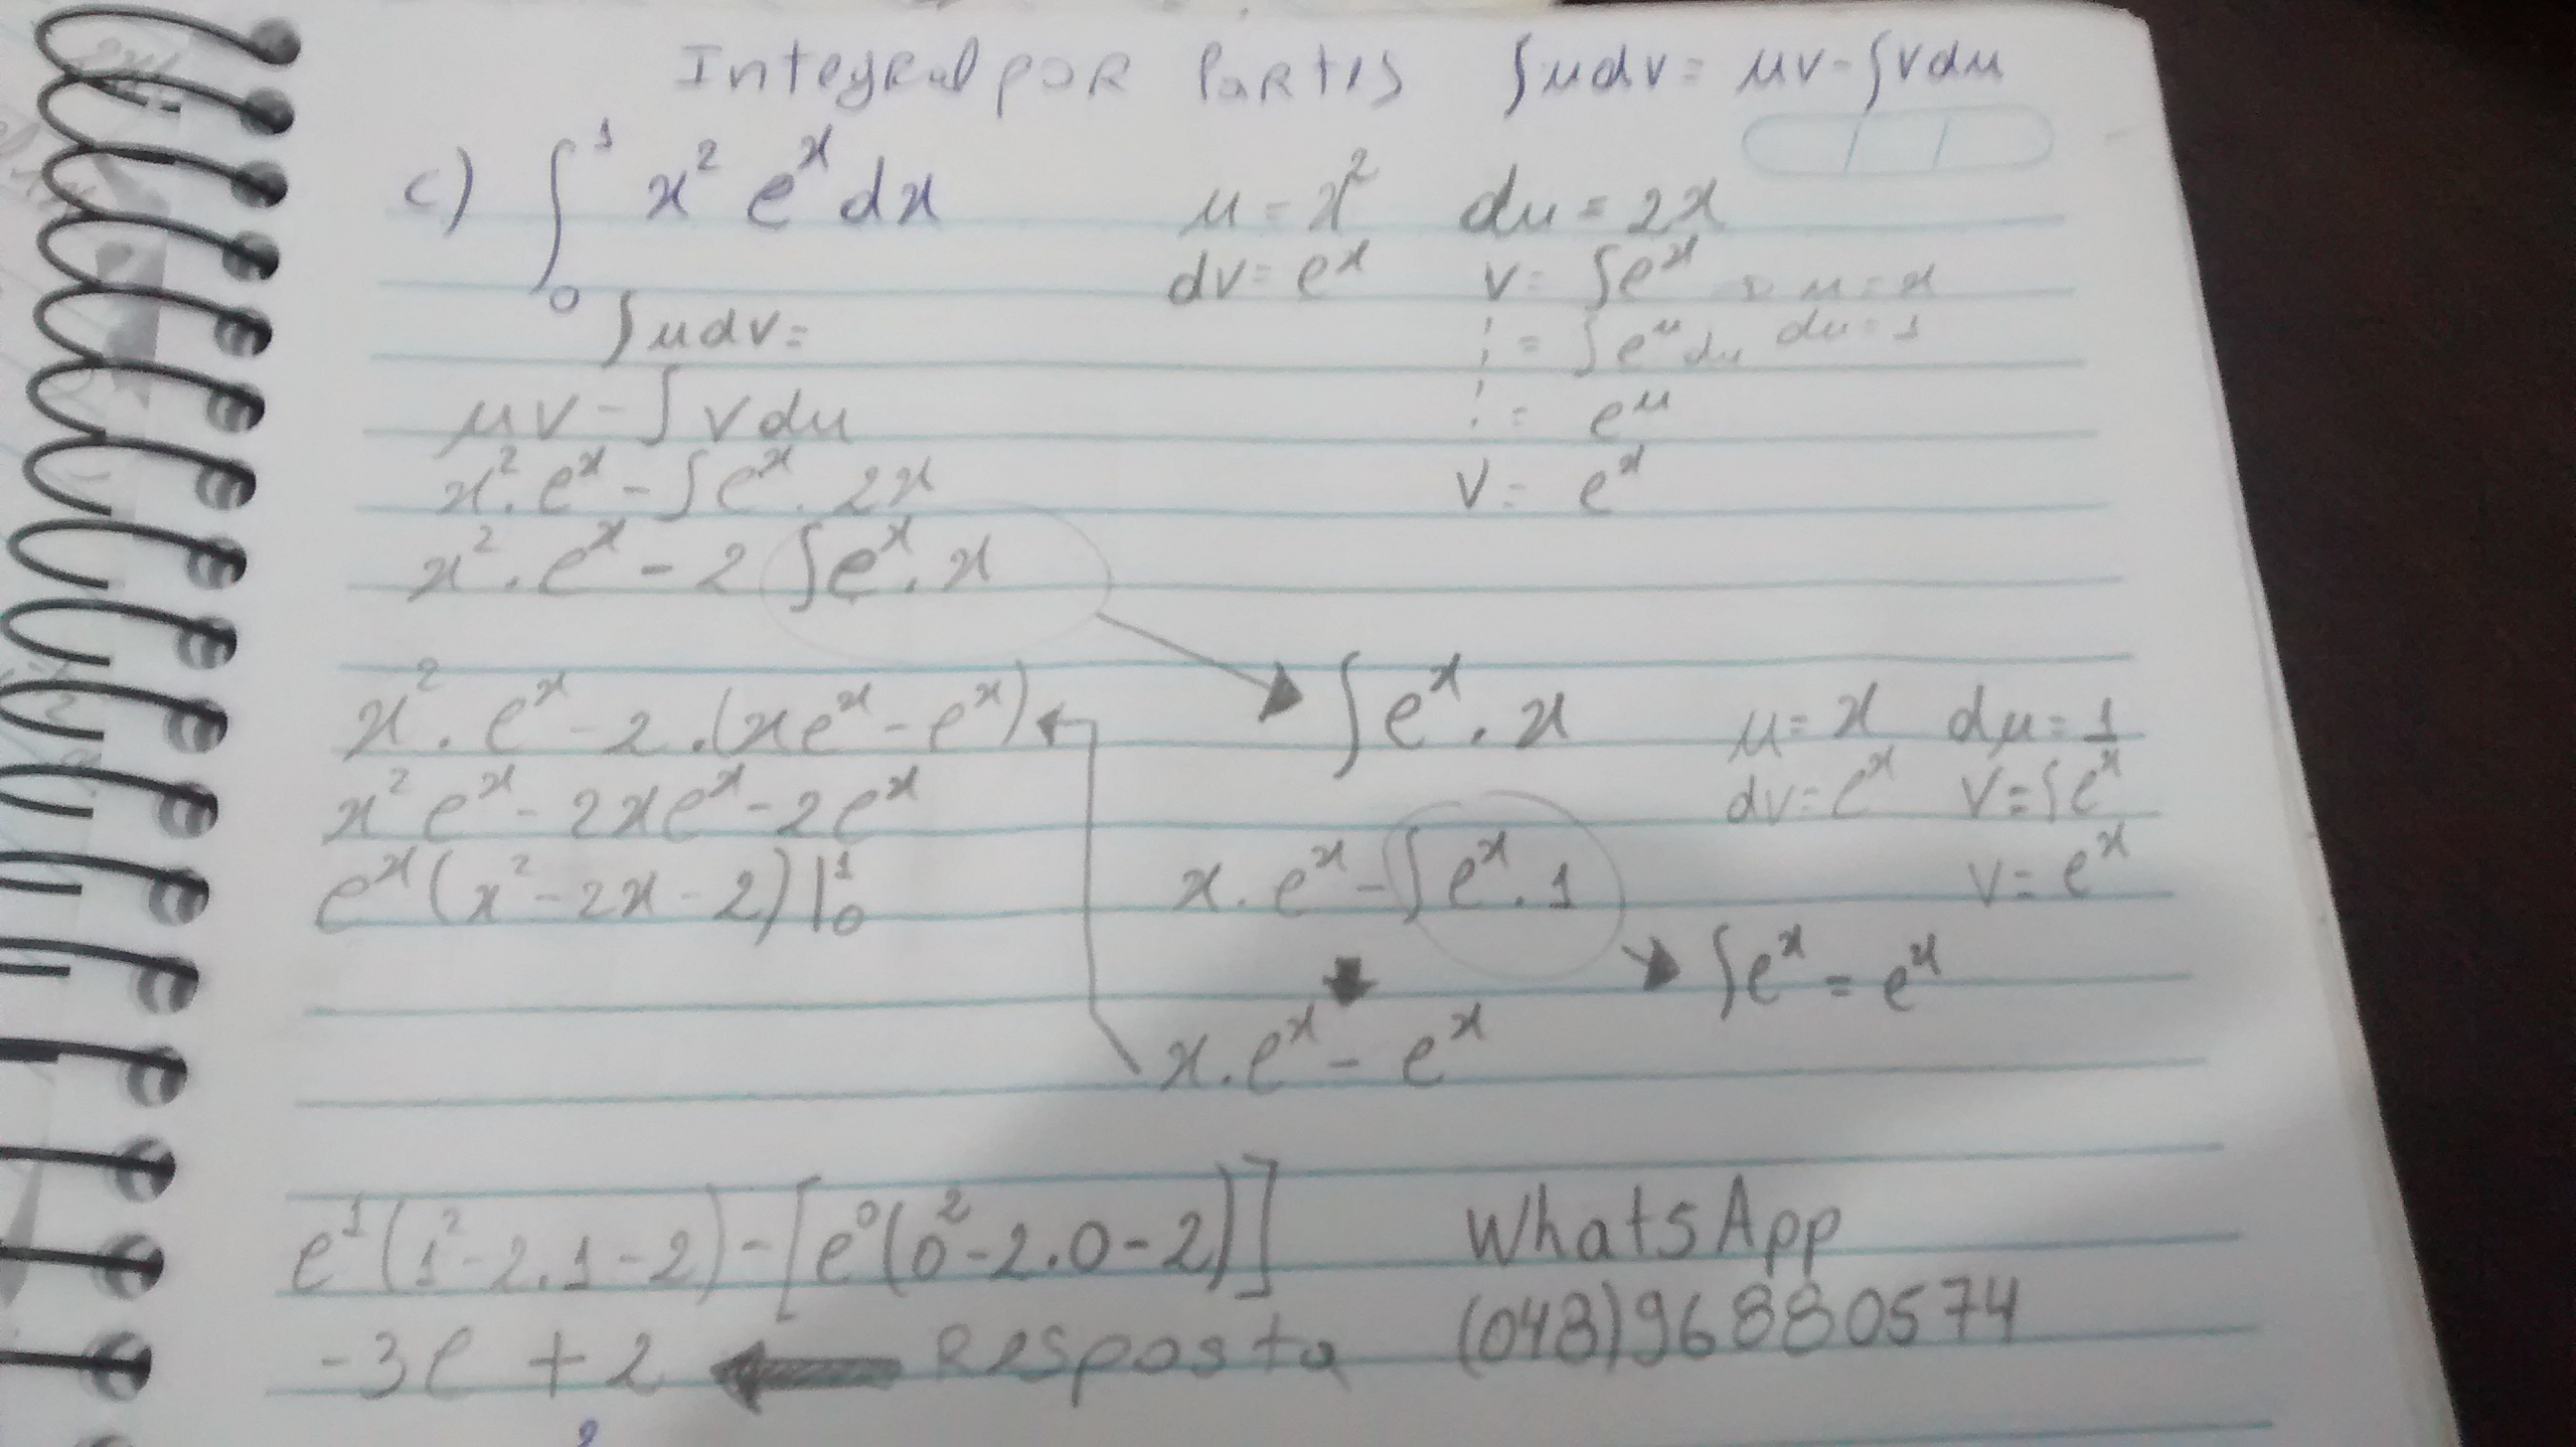 Integral por Partes ∫udv = uv-∫vdu
c) ∫₀¹ x² eˣ dx
u = x² du = 2x
dv = eˣ v = ∫eˣ → u = x
= ∫eᵘ du du = 1
= eᵘ
v = eˣ
∫udv =
uv - ∫vdu
x² . eˣ - ∫eˣ . 2x
x² . eˣ - 2 ∫eˣ . x
∫eˣ . x u = x du = 1
dv = eˣ v = ∫eˣ
v = eˣ
x . eˣ - ∫eˣ . 1
∫eˣ = eˣ
x . eˣ - eˣ
x² . eˣ - 2 . (xeˣ - eˣ)
x² eˣ - 2xeˣ - 2eˣ
eˣ (x² - 2x - 2) |₀¹
e¹ (1² - 2.1 - 2) - [e⁰ (0² - 2.0 - 2)]
-3e + 2 ← Resposta
WhatsApp
(048)96880574